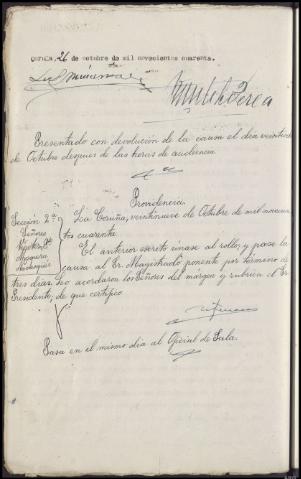 CORUÑA, 26 de octubre de mil novecientos cuarenta.
Presentado con devolución de la causa el dia veintiseis
de Octubre despues de las horas de audiencia
Providencia
Sección 2ª
Señores
La Coruña, veintinueve de Octubre de mil novecien
tos cuarenta
El anterior escrito únase al rollo, y pase la
causa al Sr. Magistrado ponente por término de
tres dias. Lo acordaron los Señores del margen y rubrica el Sr
Presidente, de que certifico
Pasa en el mismo dia al Oficial de Sala.